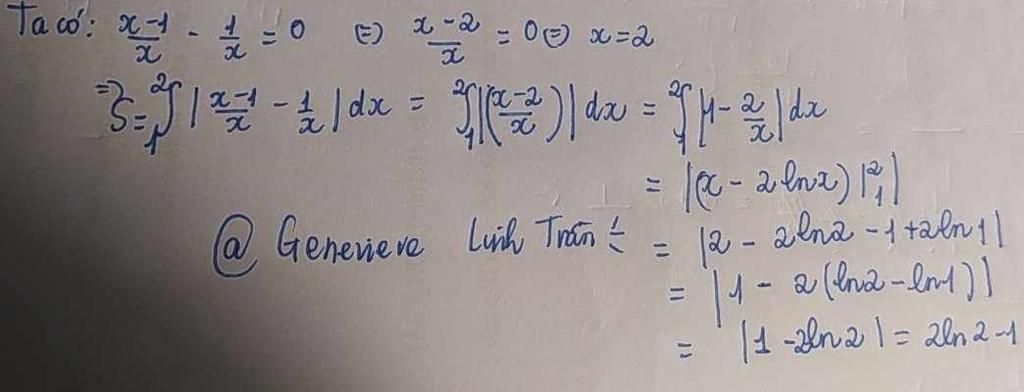 Ta có: \frac{x-1}{x} - \frac{1}{x} = 0 ⇔ \frac{x-2}{x} = 0 ⇔ x = 2
⇒ S = \int_1^2 |\frac{x-1}{x} - \frac{1}{x}| dx = \int_1^2 |(\frac{x-2}{x})| dx = \int_1^2 |1 - \frac{2}{x}| dx
= |(x - 2lnx)|_1^2|
@ Genevieve Linh Trần = |2 - 2ln2 - 1 + 2ln1|
= |1 - 2(ln2 - ln1)|
= |1 - 2ln2| = 2ln2 - 1